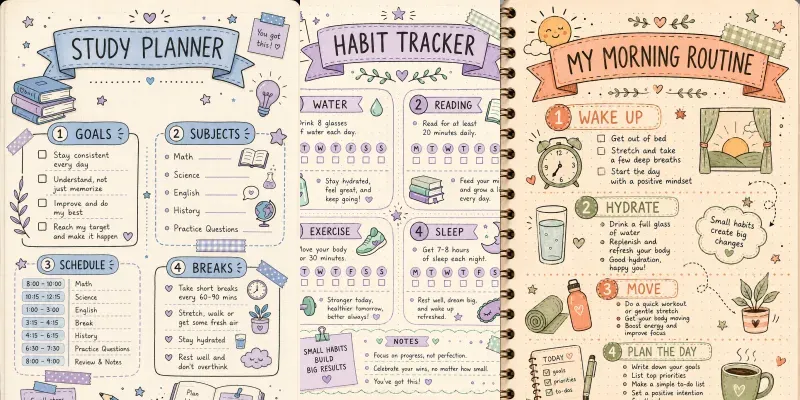 STUDY PLANNER
You got
this!
1 GOALS
Stay consistent
every day
Understand, not
just memorize
Improve and do
my best
Reach my target
and make it happen
2 SUBJECTS
Math
Science
English
History
Practice Questions
3 SCHEDULE
8:00 - 10:00 Math
10:15 - 12:15 Science
1:00 - 3:00 English
3:15 - 4:15 Break
4:15 - 6:15 History
6:30 - 7:30 Practice Questions
8:00 - 9:00 Review & Notes
4 BREAKS
Take short breaks
every 60-90 mins
Stretch, walk or
get some fresh air
Stay hydrated
Rest well and
don't overthink
Plan
HABIT TRACKER
WATER
Drink 8 glasses
of water each day.
T W T F S S
Stay hydrated,
feel great, and
keep going!
2 READING
Read for at least
20 minutes daily.
M T W T F S
Feed your
and grow a
every day.
EXERCISE
Move your body
for 30 minutes.
T W T F S S
Stronger today,
healthier tomorrow,
better always!
4 SLEEP
Get 7-8 hours
of sleep each night.
M T W T F S
Rest well, dream big,
and wake up
refreshed.
SMALL HABITS
BUILD
BIG RESULTS
NOTES
Focus on progress, not perfection.
Celebrate your wins, no matter how small.
You've got this!
MY MORNING ROUTINE
1 WAKE UP
Get out of bed
Stretch and take
a few deep breaths
Start the day
with a positive mindset
2 HYDRATE
Drink a full glass
of water
Replenish and
refresh your body
Good hydration,
happy you!
Small habits
create big
changes
3 MOVE
Do a quick workout
or gentle stretch
Get your body moving
Boost energy and
improve focus
4 PLAN THE DAY
Write down your goals
List top priorities
Make a simple to-do list
Set a positive intention
TODAY
goals
priorities
to-do